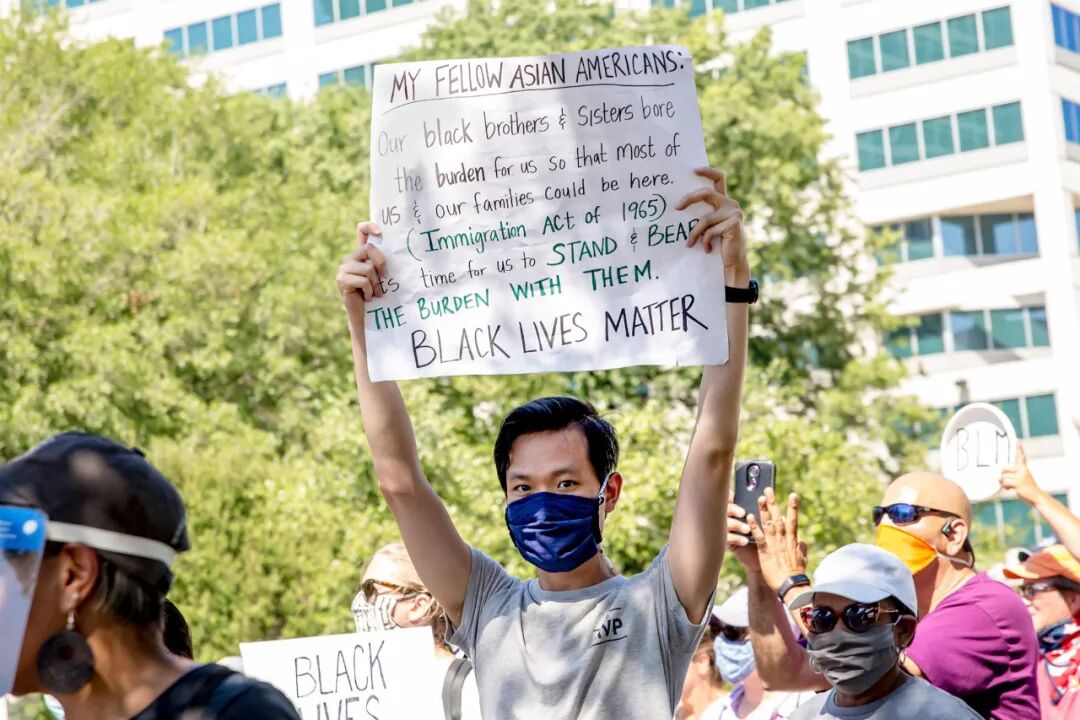 MY FELLOW ASIAN AMERICANS:
Our black brothers & Sisters bore
the burden for us so that most of
us & our families could be here.
(Immigration Act of 1965)
It's time for us to STAND & BEAR
THE BURDEN WITH THEM.
BLACK LIVES MATTER
BLM
VP
BLACK
LIVES